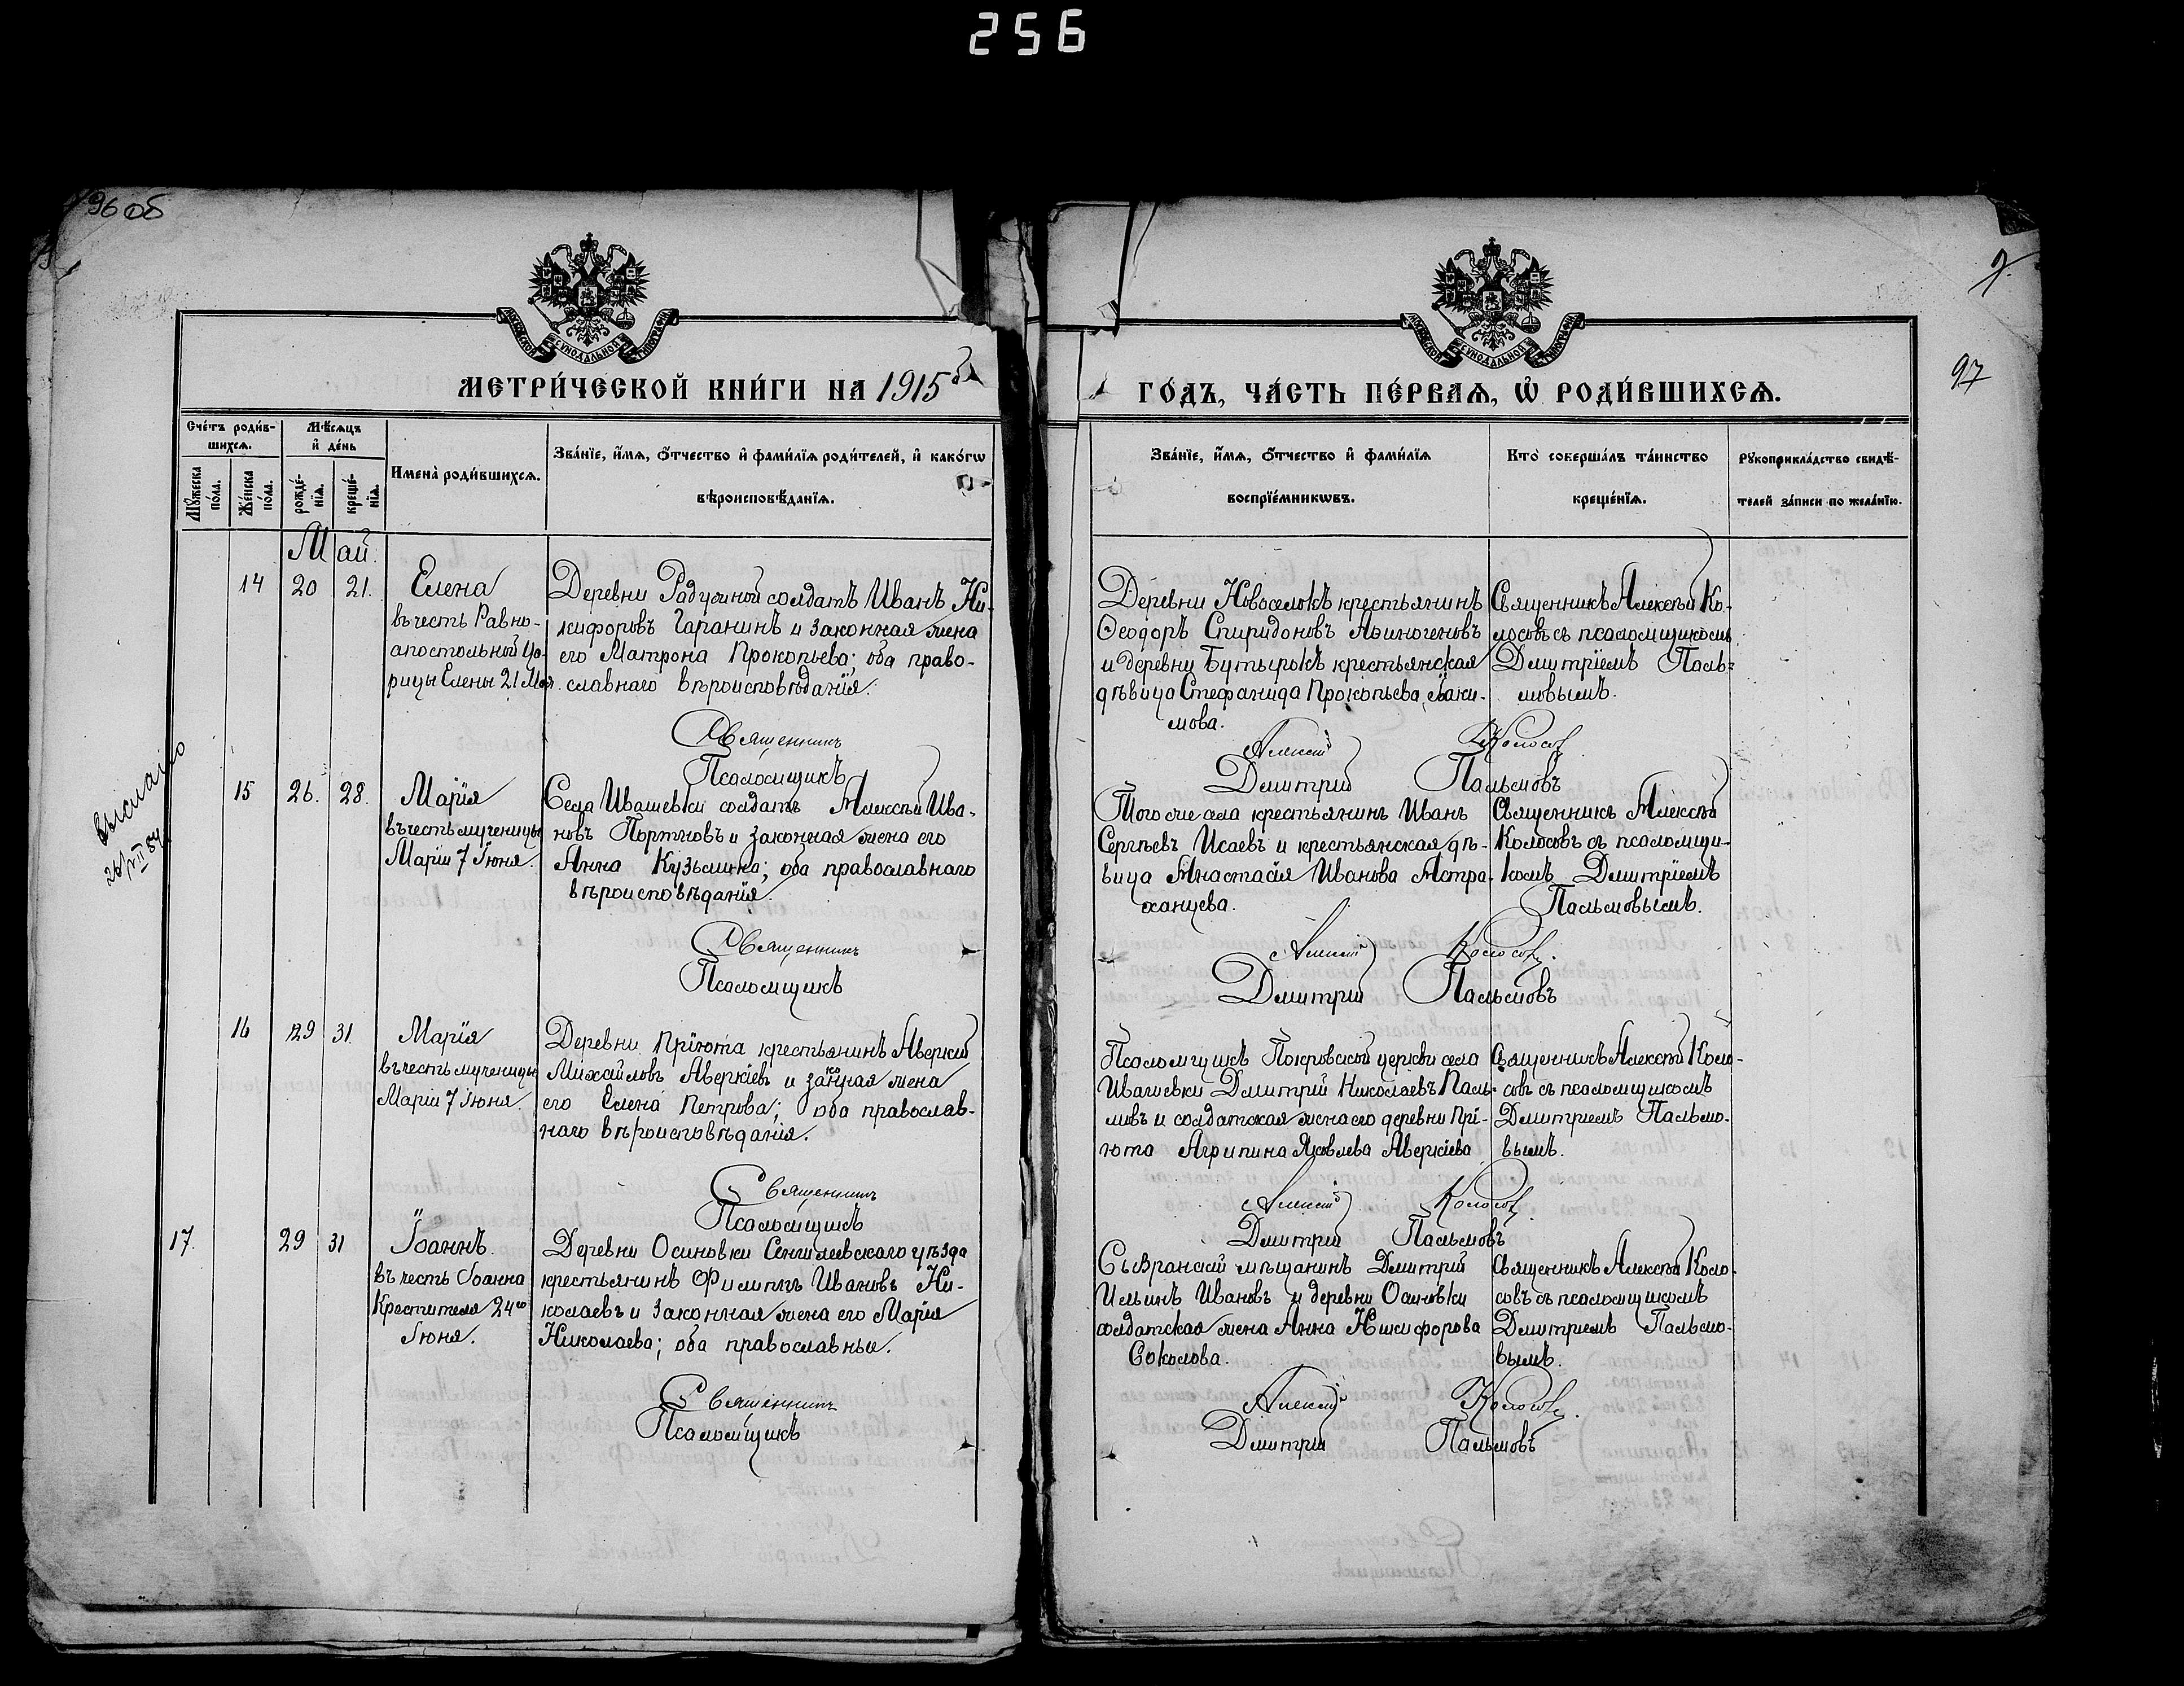 256
96 об
97
МОСКОВСКОЙ СУНОДАЛЬНОЙ ТИПОГРАФIИ
МОСКОВСКОЙ СУНОДАЛЬНОЙ ТИПОГРАФIИ
МЕТРИ́ЧЕСКОЙ КНИ́ГИ НА 1915
ГО́ДЪ, ЧА́СТЬ ПЕ́РВАѦ, Ѡ҆ РОДИ́ВШИХСѦ.
Сче́тъ роди́в-
шихсѧ.
Мꙋ́жеска по́ла.
Же́нска по́ла.
Мѣ́сѧцъ и҆ де́нь
рожде́-нїѧ.
креще́-нїѧ.
Имена̀ роди́вшихсѧ.
Зва́нїе, и҆́мѧ, ѻ҆́тчество и҆ фами́лїѧ роди́телей, и҆ како́гѡ
вѣроисповѣ́данїѧ.
Зва́нїе, и҆́мѧ, ѻ҆́тчество и҆ фами́лїѧ
воспрїе́мникѡвъ.
Кто̀ соверша́лъ та́инство
креще́нїѧ.
Рꙋкоприкла́дство свидѣ́-
телей за́писи по жела́нїю.
Май.
14 20 21.
Елена
въ честь Равно-
апостольной Ца-
рицы Елены 21 Мая.
Деревни Радушной солдатъ Иванъ Ни-
кифоровъ Гаранинъ и законная жена
его Матрона Прокопьева; оба право-
славнаго вѣроисповѣданія.
Деревни Новоселокъ крестьянинъ
Ѳеодоръ Спиридоновъ Аѳиногеновъ
и деревни Бутырокъ крестьянская
дѣвица Стефанида Прокопьева Яки-
мова.
Священникъ Алексѣй Ко-
лосовъ съ псаломщикомъ
Дмитріемъ Паль-
мовымъ.
Священникъ Алексій Колосовъ
Псаломщикъ Дмитрій Пальмовъ
выслано
15 26. 28.
Марія
въ честь мученицы
Маріи 7 Іюня.
Села Ивашевки солдатъ Алексѣй Ива-
новъ Портновъ и законная жена его
Анна Кузьмина; оба православнаго
вѣроисповѣданія.
Того же села крестьянинъ Иванъ
Сергѣевъ Исаевъ и крестьянская дѣ-
вица Анастасія Иванова Астра-
ханцева.
Священникъ Алексѣй
Колосовъ съ псаломщи-
комъ Дмитріемъ
Пальмовымъ.
Священникъ Алексій Колосовъ.
Псаломщикъ Дмитрій Пальмовъ
16 29 31.
Марія
въ честь мученицы
Маріи 7 Іюня.
Деревни Пріюта крестьянинъ Аверкій
Михайловъ Аверкіевъ и законная жена
его Елена Петрова; оба православ-
наго вѣроисповѣданія.
Псаломщикъ Покровской церкви села
Ивашевки Дмитрій Николаевъ Паль-
мовъ и солдатская жена его деревни Прі-
юта Агрипина Яковлева Аверкіева
Священникъ Алексѣй Коло-
совъ съ псаломщикомъ
Дмитріемъ Пальмо-
вымъ.
Священникъ Алексій Колосовъ.
Псаломщикъ Дмитрій Пальмовъ
17. 29 31
Іоаннъ.
въ честь Іоанна
Крестителя 24го
Іюня.
Деревни Осиновки Сенгилеевскаго уѣзда
крестьянинъ Филиппъ Ивановъ Ни-
колаевъ и законная жена его Марія
Николаева; оба православные.
Сызранскій мѣщанинъ Дмитрій
Ильинъ Ивановъ и деревни Осиновки
солдатская жена Анна Никифорова
Соколова.
Священникъ Алексѣй Коло-
совъ съ псаломщикомъ
Дмитріемъ Пальмо-
вымъ.
Священникъ Алексій Колосовъ.
Псаломщикъ Дмитрій Пальмовъ